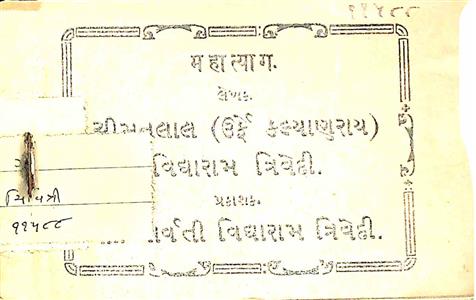 ૧૧૫૮૮
મહાત્યાગ.
લેખક.
ચીમનલાલ (ઉર્ફે કલ્યાણરાય)
વિદ્યારામ ત્રિવેદી.
પ્રકાશક.
વિદ્યારામ ત્રિવેદી.
૧૧૫૮૮